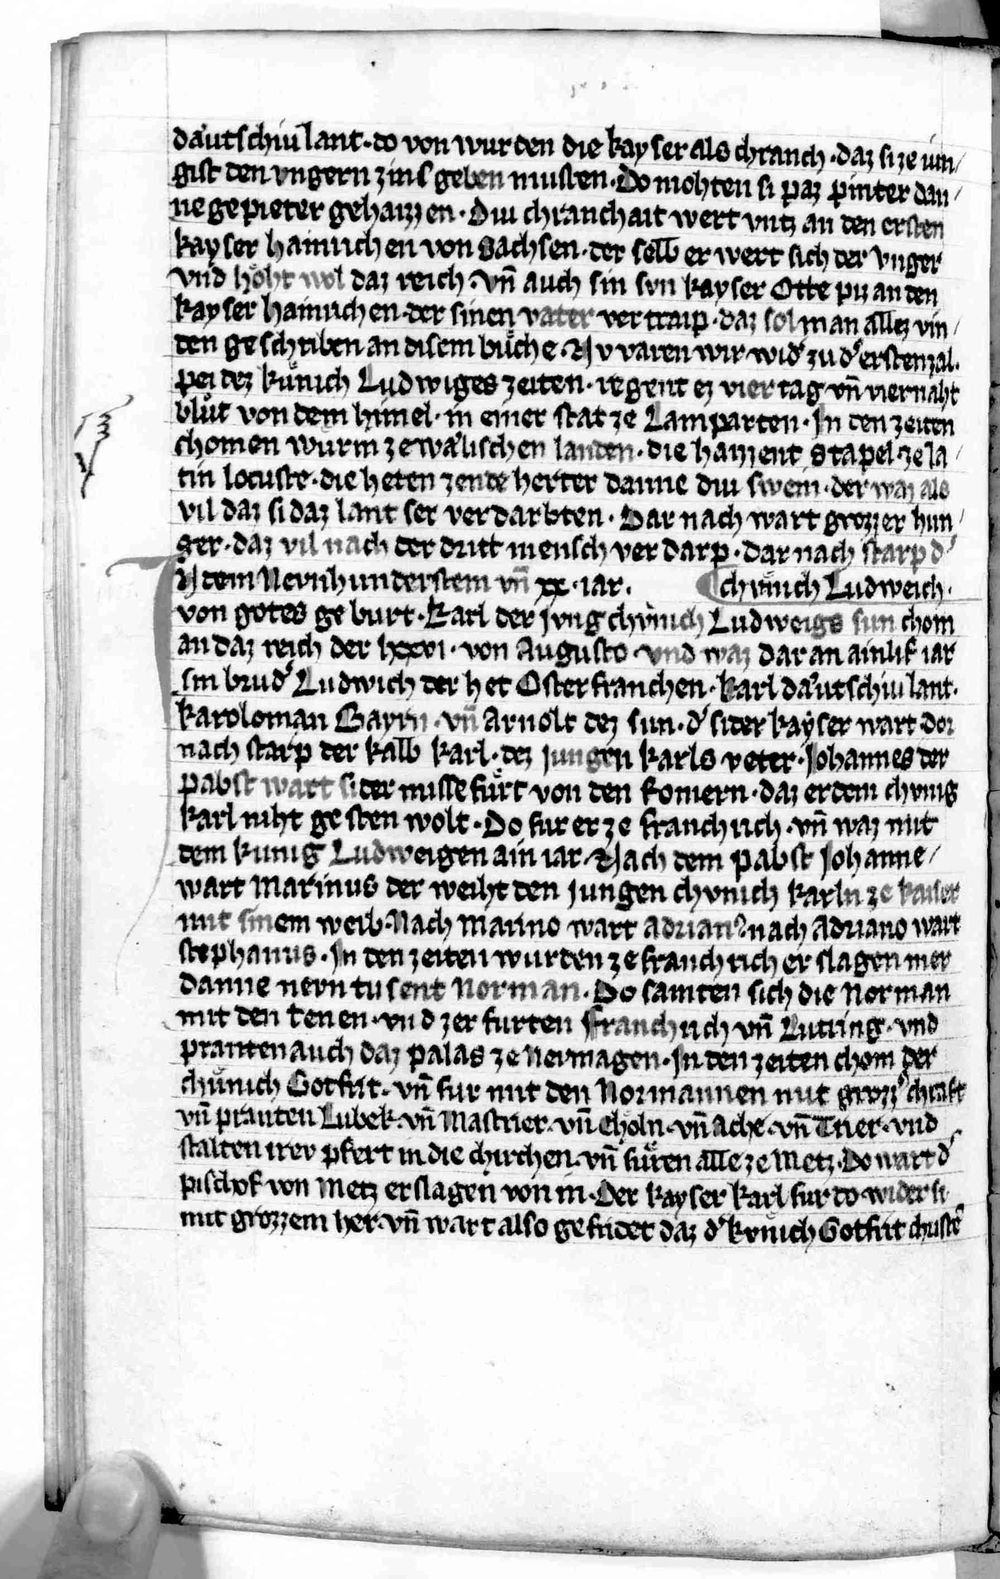 däutschiu lant · do von wurden die kayser als chranch · daz si ze iun/
gist den vngern zins geben musten · Do mohten si paz pinter dan/
ne gepieter gehaizzen · Diu chranchait wert vntz an den ersten
kayser hainrichen von Sachsen · der selb er wert sich der vnger
vnd höht wol daz reich · vñ auch sin svn kayser Otte piz an den
kayser hainrichen · der sinen vater vertraip · daz sol man allez vin/
den geschriben an disem buͤche · Nv varen wir wid' zu d' ersten zal ·
pei dez kuͤnich Ludwiges zeiten · regent ez vier tag vñ vier naht
bluͤt von dem himel · in einer stat ze Lamparten · In den zeiten
chomen wuͤrm ze wälischen landen · die haizzent stapel · ze la/
tin locuste · die heten zende herter danne diu swein · der waz als
vil daz si daz lant ser verdarbten · Dar nach wart grozzer hun/
ger · daz vil nach der dritt mensch verdarp · dar nach starp d'
In dem Nevnhundersten vñ xx · iar · chvͤnich Ludweich ·
von gotes geburt · Karl der jvng chvͤnich Ludweigs sun chom
an daz reich der lxxxvi · von Augusto vnd waz dar an ainlif iar
sin brud' Ludwich der het Osterfranchen · karl däutschiu lant ·
karoloman Bayrn · vñ arnolt dez sun · d' sider kayser wart dor
nach starp der kalb karl · dez jungen karls veter · Johannes der
pabst wart sider missefuͤrt von den Romern · daz er dem chvnig
karl niht gesten wolt · Do fur er ze franchrich · vñ waz mit
dem kunig Ludweigen ain iar · Nach dem pabst Johanne/
wart Marinus der weiht den jungen chvnich karln ze kaiser
mit sinem weib · Nach marino wart adrian9 nach Adriano wart
stephanus · In den zeiten wurden ze franchrich erslagen mer
danne nevn tusent Norman · Do samten sich die Norman
mit den tenen · vnd zerfurten franchrich vñ Lutring · vnd
pranten auch daz palas ze Nevmagen · In den zeiten chom der
chuͤnich Gotfrit · vñ fur mit den Normannen mit grozz' chraft
vñ pranten Lubek · vñ Mastrier · vñ Choͤln · vñ Ache · vñ Trier · vnd
stalten irev pfert in die chirchen · vñ fuͤren alle ze Metz · Do wart d'
pischof von Metz erslagen von in · Der kayser karl fur do wider si
mit grozzem her · vñ wart also gefridet daz d' kvnich Gotfrit